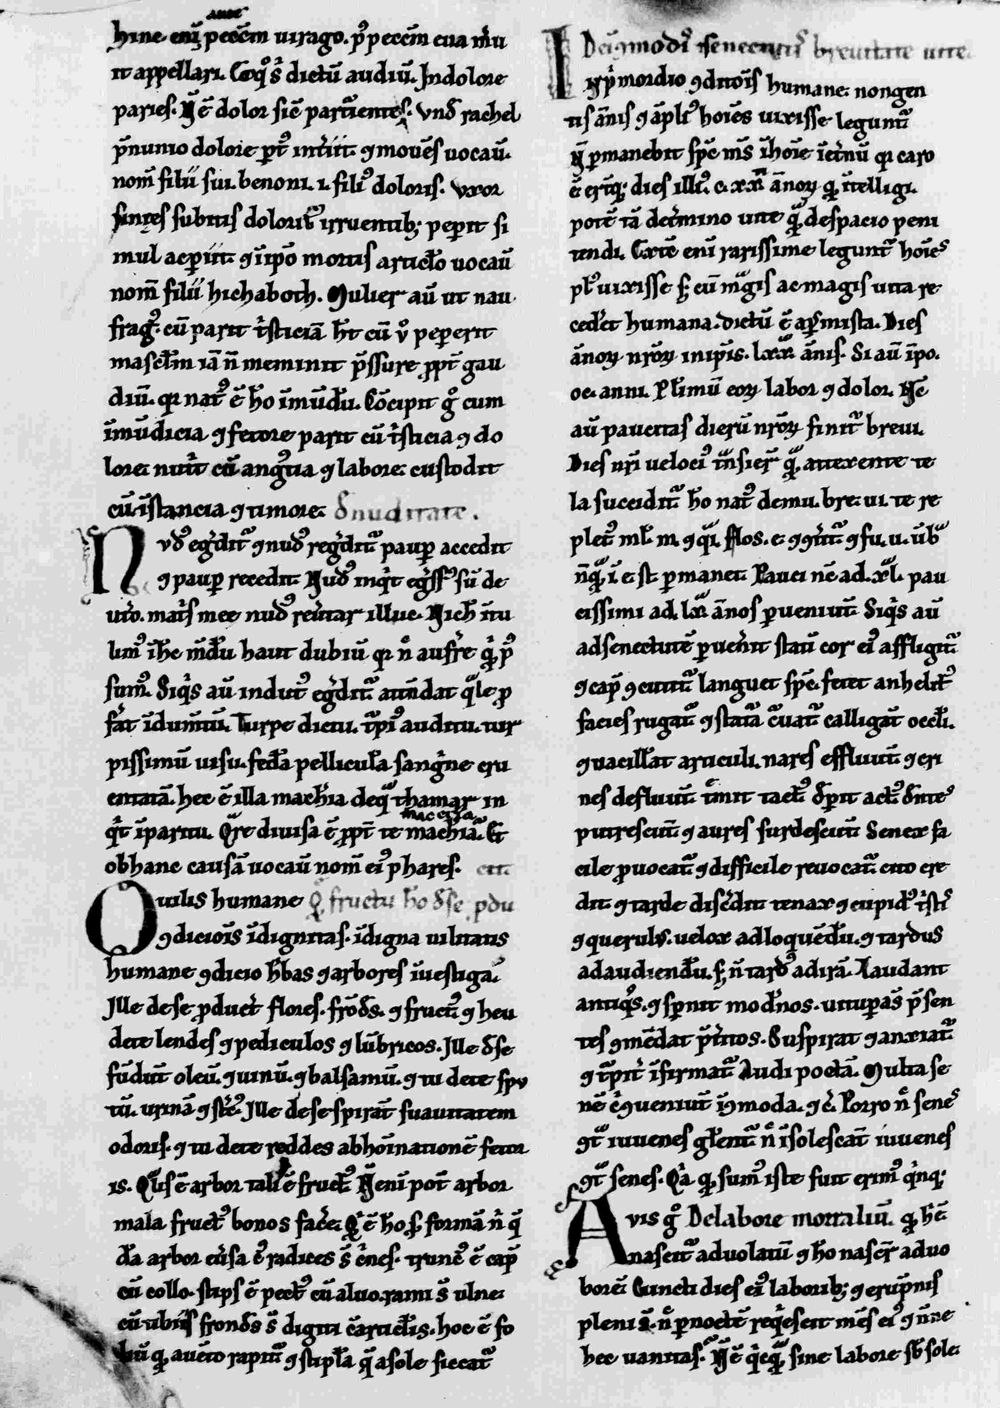 hinc eni̅ ante pecc̅m uirago. p̉ pecc̅m eua m̅u
it appellari. Eoqꝰ s̉ dictu̅ audiu̅. In dolore
paries. N̅ e̅ dolor sic̅ parturientis. Vn̅ rachel
p̅ nimio dolore pt̉ int̉iit. ꝯ moue̅s uocau̅
nom̅ filii sui. benoni. .i. filiꝰ doloris. Vxor
finees subitis dolorib; irruentib; pep̲it si
mul ac p̲iit. ꝯ i̅ ip̅o mortis articl̅o uocau̅
nom̅ filii hichaboth. Mulier au̅ ut nau
frag̉. cu̅ parit t̉sticia̅ h̅t cu̅ ủ pep̲erit
mascl̅m ia̅ n̅ meminit p̅ssure ꝓpt̉ gau
diu̅. qꝛ natꝰ e̅ h̅o i̅ mu̅du̅. Co̅cipit g̉ cum
i̅mu̅dicia ꝯ fetore parit cu̅ t̉sticia ꝯ do
lore. nut̉it cu̅ angu̅a ꝯ labore. custodit
cu̅ i̅stancia ꝯ timore. d̉ nuditate.
Nudꝰ eg̉dit̉ ꝯ nudꝰ reg̉dit̉ paup̲ accedit
ꝯ paup̲ recedit Nudꝰ inq̉t eg̉ssꝰ su̅ de
ut̉o. mat̉s mee nudꝰ reu̅tar illuc. Nich̅ i̅tu
limꝰ i̅ h̅c mu̅du̅ haut dubiu̅ qꝛ n̅ aufr̅e q̉ pꝰ
sumꝰ. Siq̉s au̅ indutꝰ eg̉dit̉ atte̅dat q̉le ꝓ
f̅at i̅dum̅tu̅. Turpe dictu. t̉piꝰ auditu. tur
pissimu̅ uisu. feda̅ pellicula̅ sang̉ne cru
entata̅. hec e̅ illa mach̅ia de q̉ thamar in
q̉t i̅ partu. Q̉re diuisa e̅ ꝓpt̉ te maceria mach̅ia̅. Et
ob hanc causa̅ uocau̅ nom̅ eiꝰ phares.
Quilis humane q̉ fructu h̅o d̉ se ꝓdu cit
ꝯdicio̅is i̅dignitas. i̅digna uilitatis
humane ꝯdicio h̅bas ꝯ arbores i̅uestiga.
Ille de se ꝓducu̅t flores. fro̅ds. ꝯ fructꝰ ꝯ heu
de te lendes ꝯ pediculos ꝯ lu̅bricos. Ille d̉ se
fu̅du̅t oleu̅. ꝯ uinu̅. ꝯ balsamu̅. ꝯ tu de te spu
tu̅. urina̅ ꝯ st̉cꝰ. Ille de se spira̅t suauitatem
odoris. ꝯ tu de te reddes abho̅inatione̅ fetor
is. Q̉lis e̅ arbor talis e̅ fructꝰ. N̅ eni̅ pot̅ arbor
mala fructꝰ bonos fac̅e. Q̉ e̅ h̅o s̉ forma̅ n̅ q̉
da̅ arbor eu̅sa cꝰ radices s̅ c̉nes. truncꝰ e̅ cap̲
cu̅ collo. stips e̅ pectꝰ cu̅ aluo. rami s̅ ulne
cu̅ tibiis fronds s̅ digiti cu̅ articl̅is. hoc e̅ fo
liu̅ q̉ a ue̅to rapit̉ ꝯ stipl̅a q̉ a sole siccat̉
De i̅co̅modꝰ senectutis ꝯ breuitate uite.
In p̉mordio ꝯditio̅is humane. nongen
tis an̅is ꝯ a̅pliꝰ ho̅ies uixisse legunt̉
N̅ p̲manebit sp̅c m̅s i̅ ho̅ie i̅ et̉nu̅ qꝛ caro
e̅ eritq; dies illiꝰ. c. xx. annoꝝ q̉ i̅telligi.
pote̅ ta̅ de t̉mino uite q̉ de spacio peni
tendi. Ex te̅ eni̅ rarissime legunt̉ ho̅ies
plꝰ uixisse s̉ cu̅ m̉gis ac magis uita re
ced̉et humana. dictu̅ e̅ a psalmista. Dies
annoꝝ nr̅oꝝ in ip̅is. lxx. an̅is. Si au̅ i̅ po.
oc. anni. Plimu̅ eoꝝ labor ꝯ dolor. N̅e
au̅ paucitas dieru̅ nr̅oꝝ finit̉ breui.
Dies nr̅i uelocỉ t̉nsier̅ q̉ a texente te
la succidit̉ h̅o natꝰ de mu. bre. ui. te. re
plet̉ ml̅. m. ꝯ q̉i. flos. e. ꝯ ꝯt̉it̉ ꝯ fu. u. u̅b̉
n̅ q̉ i̅ e. st. p̲manet. Pauci n̅c ad. xl. pau
cissimi ad. lx. annos p̲ueniu̅t. Siq̉s au̅
ad senectute̅ p̲uen̉it stati̅ cor eiꝰ affligit̉
ꝯ cap̲ ꝯcutit̉ languet sp̅c. fetet anhelitꝰ
facies rugat̉ ꝯ statura c̉uat̉ calligant ocl̅i.
ꝯ uacilla̅t articuli. nares efflunt ꝯ cri
nes defluunt t̉mit tactꝰ d̉p̲it actꝰ d̉ntes
putrescu̅t ꝯ aures surdescu̅t Senex fa
cile ꝓuocat̉ ꝯ difficile reuocat̉ cito cre
dit ꝯ tarde disc̉dit tenax ꝯ cupidꝰ t̉stis
ꝯ queruls. uelox ad loque̅du̅. ꝯ tardus
ad audiendu̅. s̉ n̅ tardꝰ ad ira̅. Laudant
antiq̉s. ꝯ sp̲nit mod̉nos. uitup̲as p̅sen
tes ꝯme̅dat p̅titos. Suspirat ꝯ anxiat̉
ꝯ t̉pit ꝯ i̅firmat̉ Audi poeta̅. Multa se
ne̅ c̉ꝯueniu̅t i̅ꝯmoda. ꝯ c̉. Porro n̅ senes
ꝯt̉ iuuenes gl̅ent̉ n̅ i̅solesca̅t iuuenes
ꝯt̉ senes. Q̉a q̉ sumꝰ iste fuit erimꝰ q̉nq;
Auis g̉ De labore mortaliu̅. q̉ h̅e
nascit̉ ad uolatu̅ ꝯ h̅o nascit̉ ad uo
bore̅. Cuncti dies eiꝰ laborib; ꝯ eru̅pnis
pleni s̅. n̅ p̲ nocte̅ req̉escit me̅s eiꝰ ꝯ
hec uanitas. N̅ e̅ q̉cq̉ sine labore sb̅ sole.